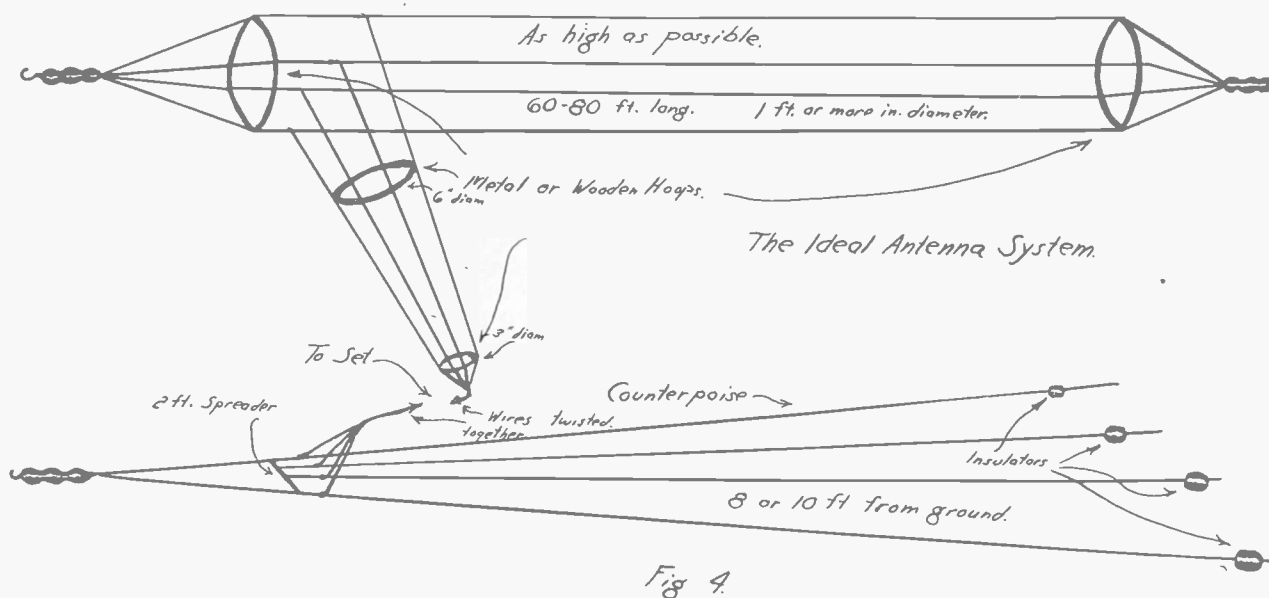 As high as possible.
60-80 ft. long. 1 ft. or more in. diameter.
Metal or Wooden Hoops.
6" diam
The Ideal Antenna System.
3" diam
To Set
2 ft. Spreader
Counterpoise
Wires twisted.
together
Insulators
8 or 10 ft from ground.
Fig 4.